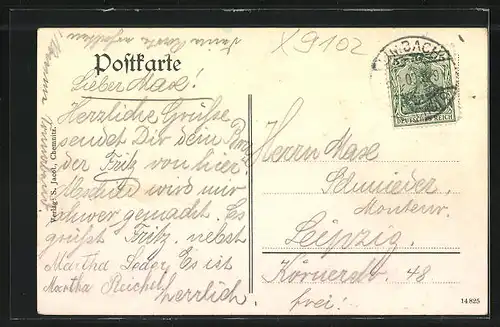 X9102
Postkarte
Lieber Max!
Herzliche Grüsse
sendet Dir dein
der Fritz von hier.
wird mir
schwer gemacht. Es
grüsst Fritz. nebst
Martha Es ist
Martha Reichel
herrlich
Verlag: S. Jacobi, Chemnitz.
DEUTSCHES REICH
Herrn Max
Schmieder,
Monteur.
Leipzig.
Körnerstr. 48
frei!
14825